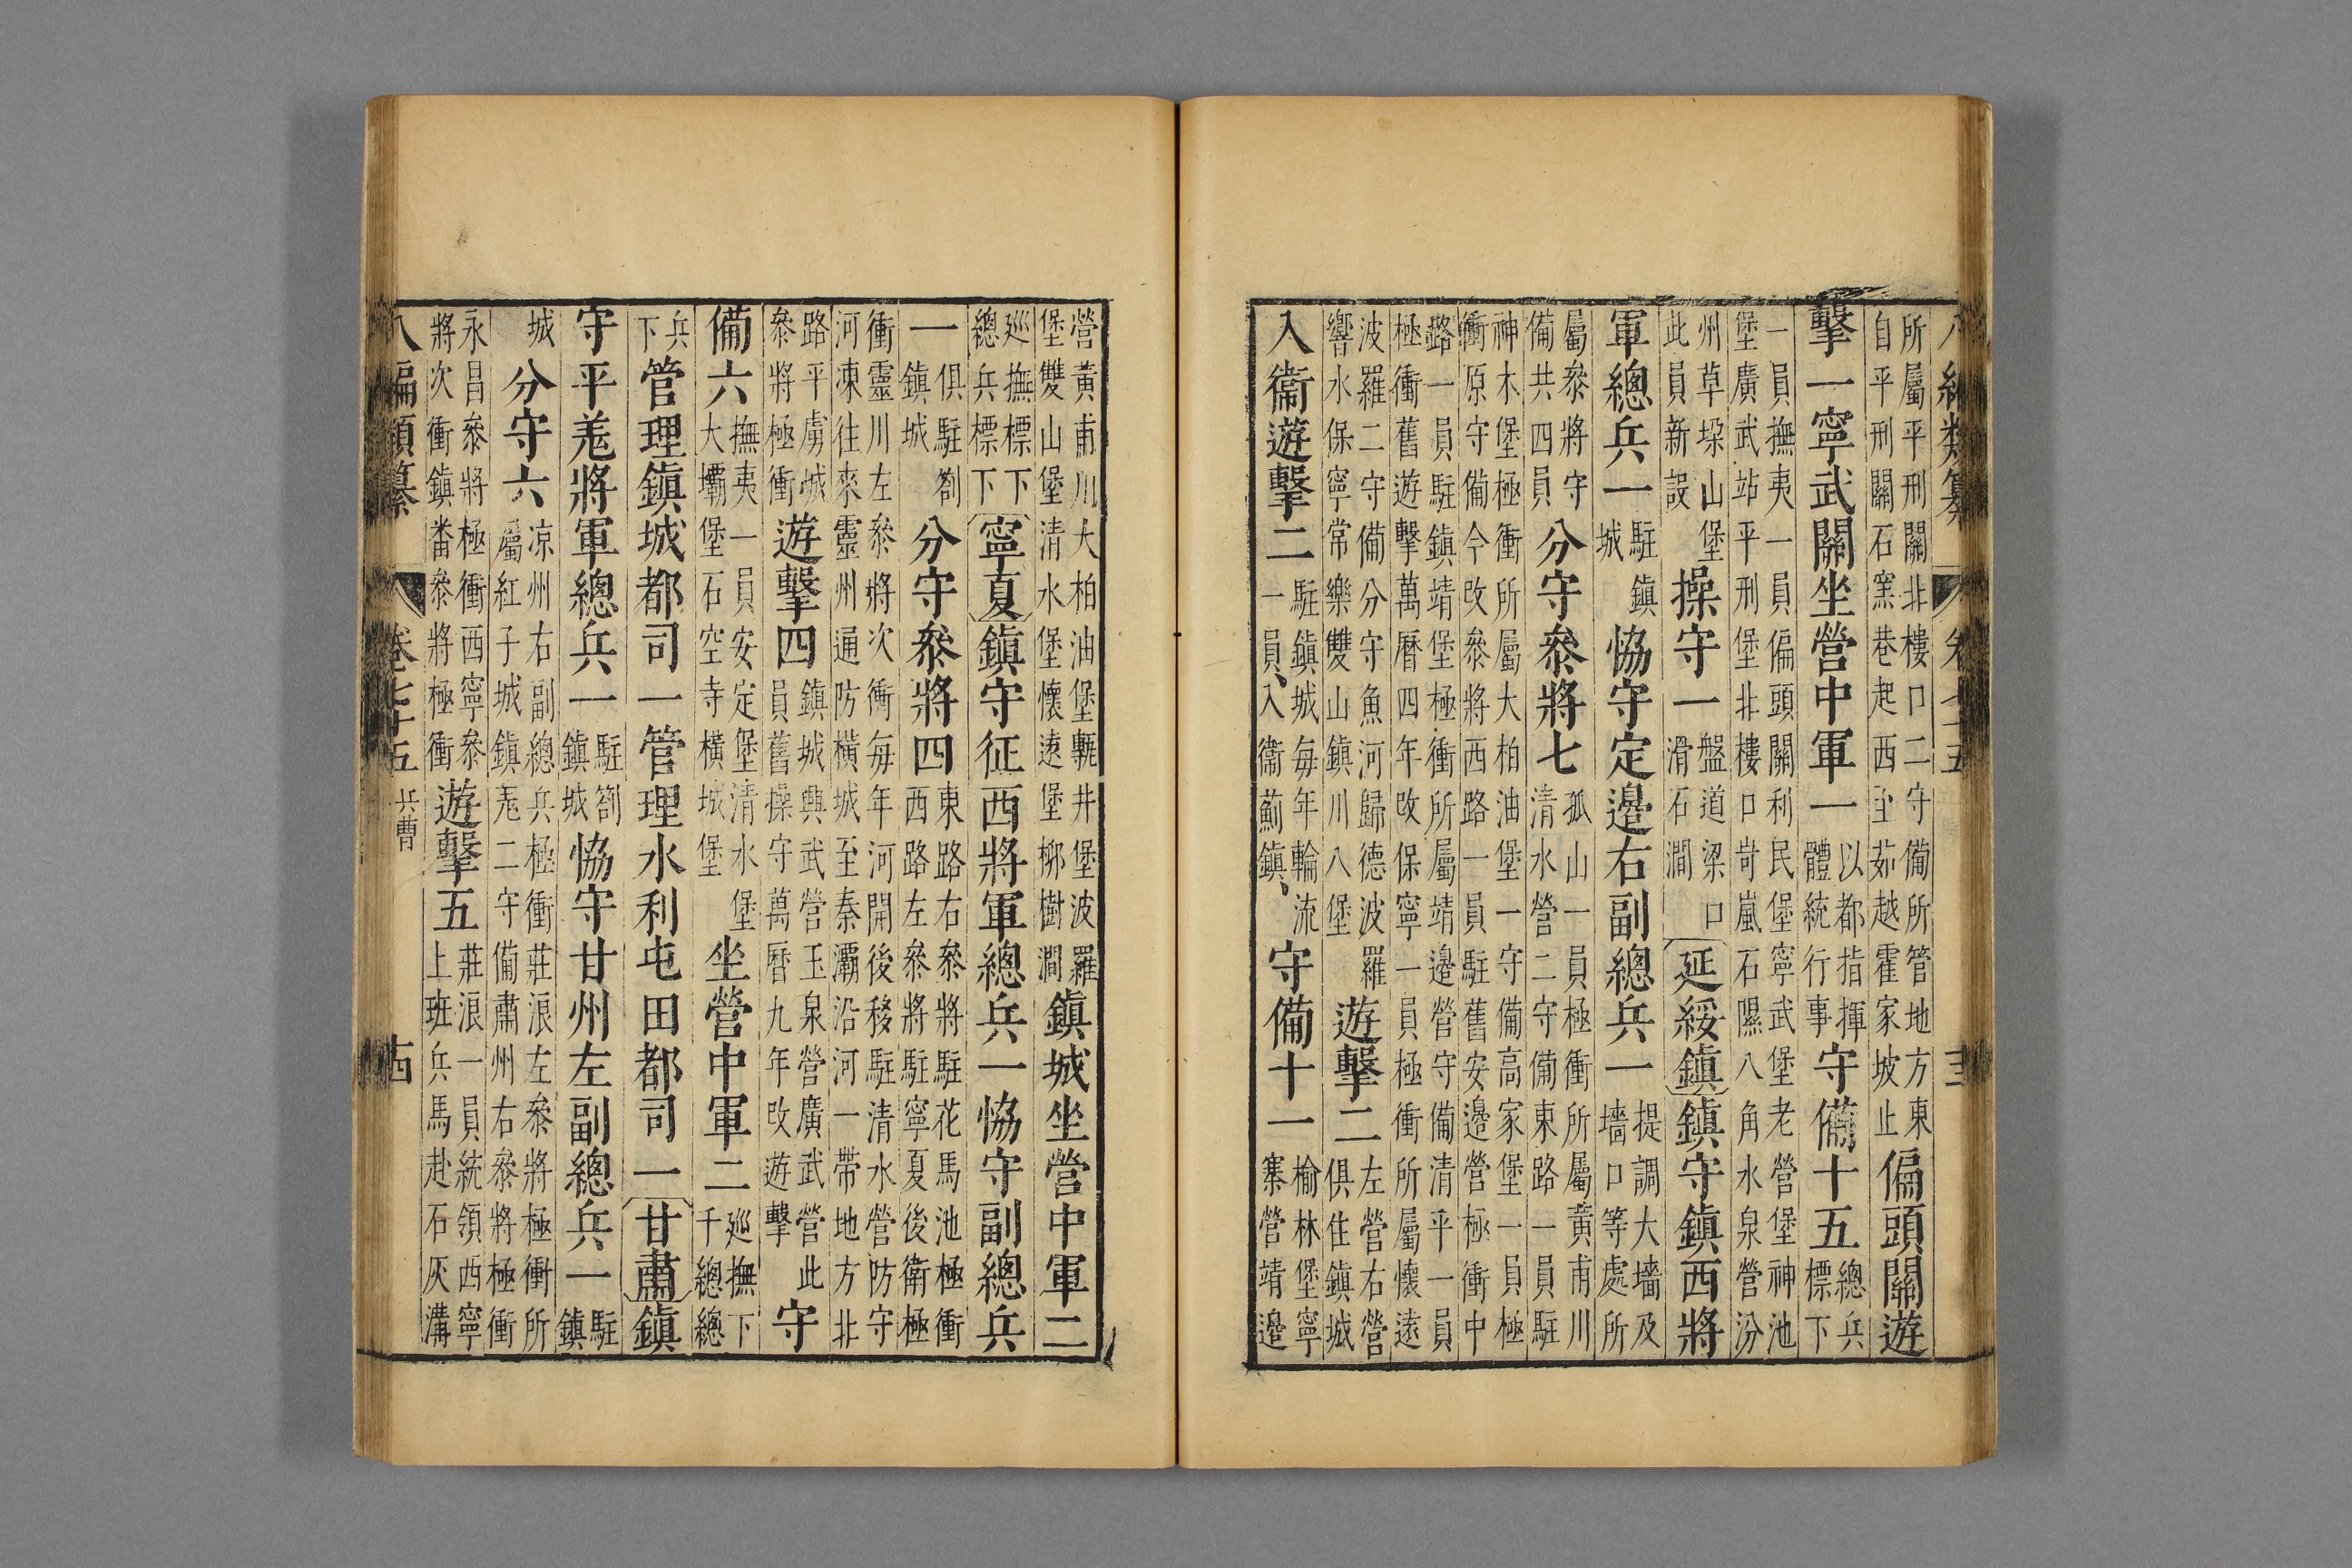 八編類纂 卷七十五 十三
所屬平刑關北樓口二守備所管地方東
自平刑關石窯巷起西至茹越霍家坡止
偏頭關遊
擊一寧武關坐營中軍一
以都指揮
體統行事
守備十五
總兵
標下
一員撫夷一員偏頭關利民堡寧武堡老營堡神池
堡廣武站平刑堡北樓口岢嵐石隰八角水泉營汾
州草垛山堡
此員新設
操守一
盤道梁口
滑石澗
延綏鎮鎮守鎮西將
軍總兵一
駐鎮
城
協守定邊右副總兵一
提調大墻及
墻口等處所
屬叅將守
備共四員
分守叅將七
孤山一員極衝所屬黃甫川
清水營二守備東路一員駐
神木堡極衝所屬大柏油堡一守備高家堡一員極
衝原守備今改叅將西路一員駐舊安邊營極衝中
路一員駐鎮靖堡極衝所屬靖邊營守備清平一員
極衝舊遊擊萬曆四年改保寧一員極衝所屬懷遠
波羅二守備分守魚河歸德波羅
響水保寧常樂雙山鎮川八堡
遊擊二
左營右營
俱住鎮城
入衞遊擊二
駐鎮城每年輪流
一員、入衞薊鎮、
守備十一
榆林堡寧
寨營靖邊
營黃甫川大柏油堡甎井堡波羅
堡雙山堡清水堡懷遠堡柳樹澗
鎮城坐營中軍二
廵撫標下
總兵標下
寧夏鎮守征西將軍總兵一協守副總兵
一
俱駐劄
鎮城
分守叅將四
東路右叅將駐花馬池極衝
西路左叅將駐寧夏後衞極
衝靈川左叅將次衝每年河開後移駐清水營防守
河凍往來靈州通防橫城至秦灞沿河一帶地方北
路平虜城
叅將極衝
遊擊四
鎮城興武營玉泉營廣武營此
員舊操守萬曆九年改遊擊
守
備六
撫夷一員安定堡清水堡
大壩堡石空寺橫城堡
坐營中軍二
廵撫下
千總總
兵
下
管理鎮城都司一管理水利屯田都司一甘肅鎮
守平羗將軍總兵一
駐劄
鎮城
協守甘州左副總兵一
駐
鎮
城
分守六
凉州右副總兵極衝莊浪左叅將極衝所
屬紅子城鎮羗二守備肅州右叅將極衝
永昌叅將極衝西寧叅
將次衝鎮番叅將極衝
遊擊五
莊浪一員統領西寧
上班兵馬赴石灰溝
八編類纂 卷七十五 兵曹 十四